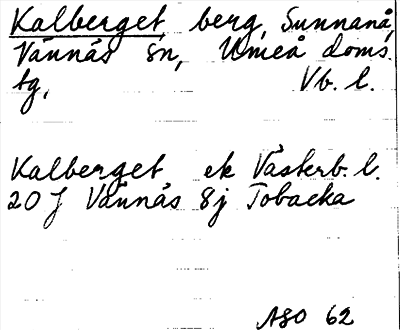 Kalberget, berg, Sunnanå,
Vännäs sn, Umeå doms.
tg, Vb. l.
Kalberget ek Västerb. l.
20 J Vännäs 8j Tobacka
ASO 62